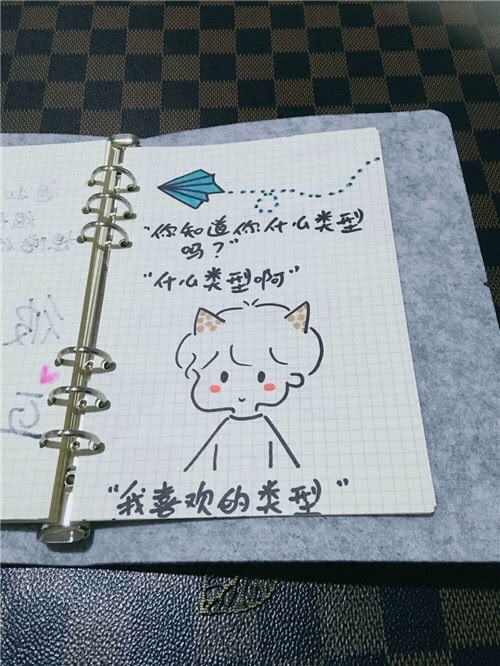 "你知道你什么类型
吗？"
"什么类型啊"
"我喜欢的类型"